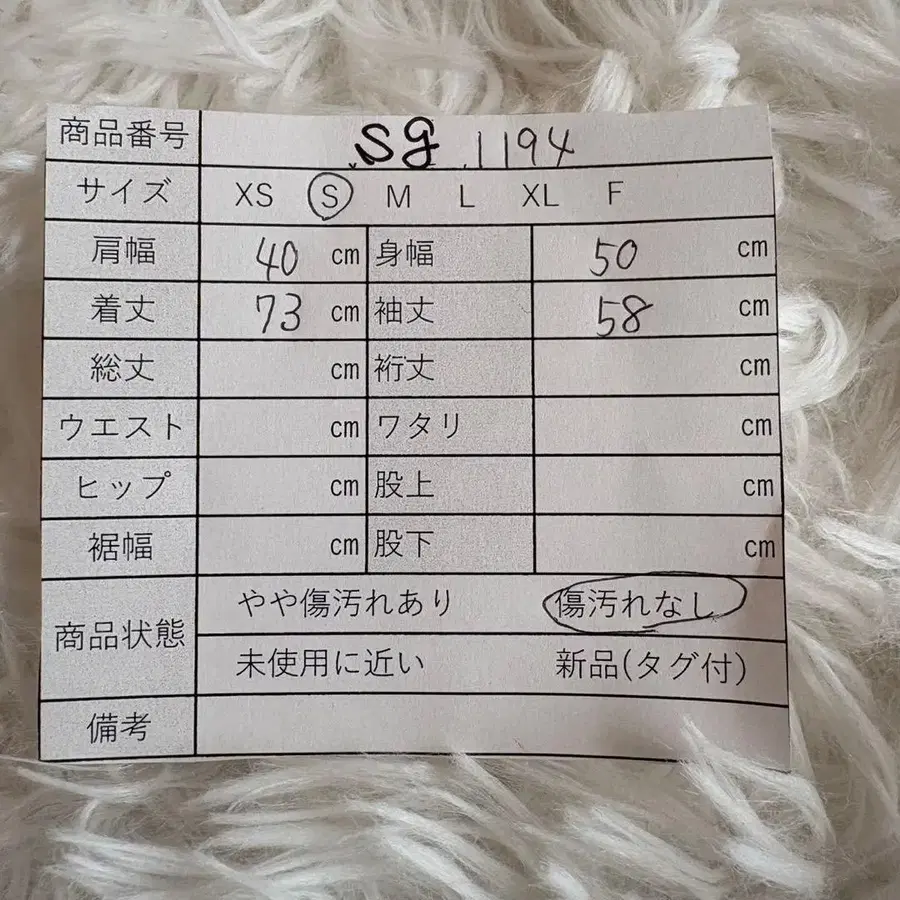 商品番号 sg 1194
サイズ XS S M L XL F
肩幅 40 cm 身幅 50 cm
着丈 73 cm 袖丈 58 cm
総丈 cm 裄丈 cm
ウエスト cm ワタリ cm
ヒップ cm 股上 cm
裾幅 cm 股下 cm
商品状態 やや傷汚れあり 傷汚れなし
未使用に近い 新品(タグ付)
備考